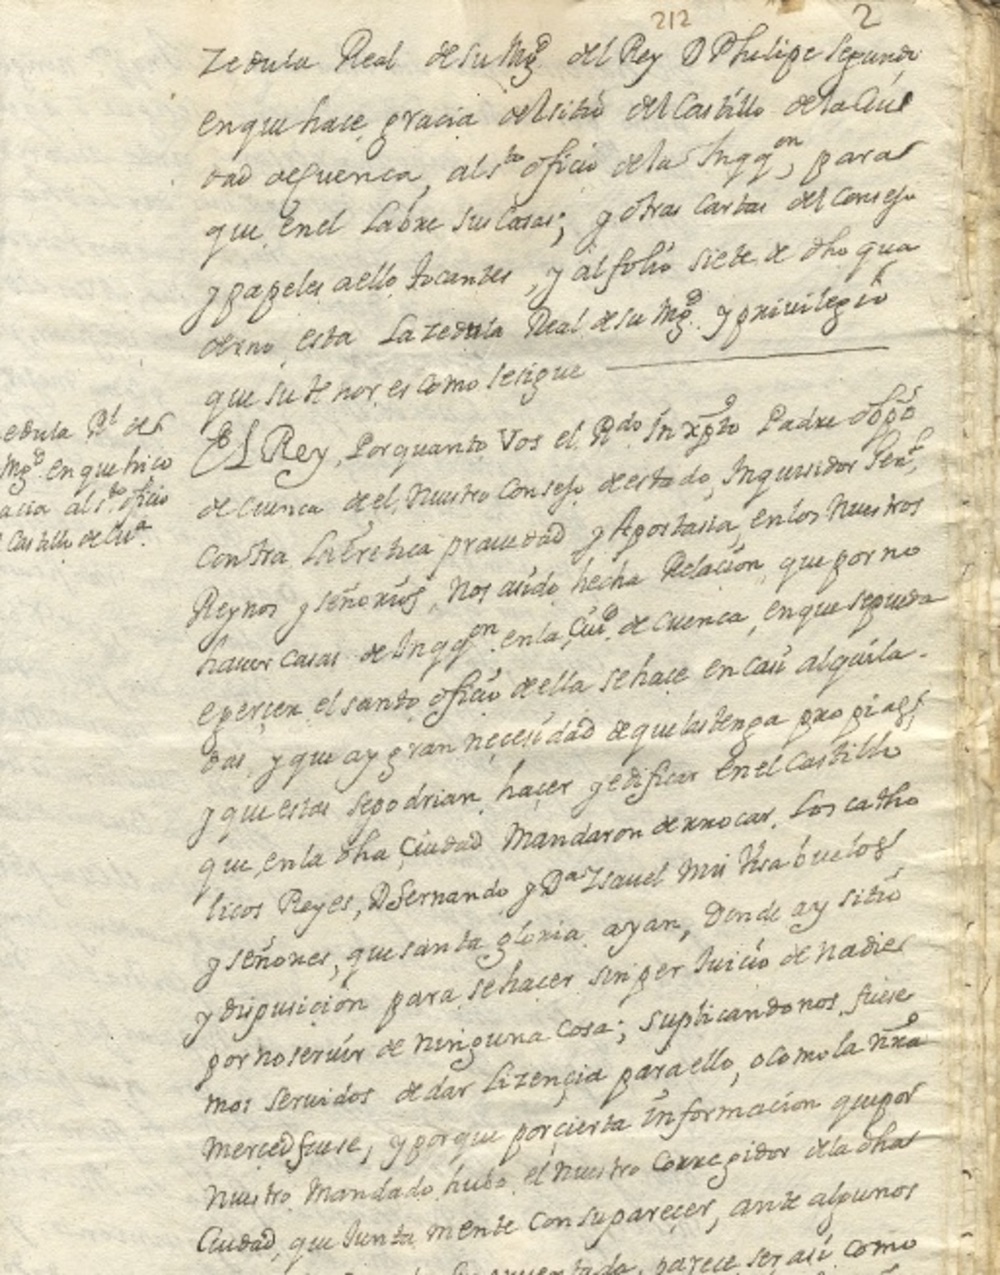 212 2
Zedula Real de su Mgd del Rey D Phelipe Segundo
en que hace gracia del sitio del Castillo de la Ciu
dad de Cuenca, al sto oficio de la Inqqon, para
que en el Labre sus Casas; y otras Cartas del Consejo
y papeles a ello tocantes, y al folio siete de dho qua
derno esta La Zedula Real de su Mgd y privilegio
que su tenor es como se sigue
edula Rl de S
Mgd en que hico
acia al sto oficio
l Castillo de Cua.
El Rey, Por quanto Vos el Rdo in xpto Padre obpo
de Cuenca de el Nuestro Consejo de estado, Inquisidor Genl,
Contra La eretica prauedad y Apostasia, en los Nuestros
Reynos y señorios, Nos a sido hecha Relacion, que por no
hauer Casas de Inqqon en la Ciud de Cuenca, en que se pueda
exerçer el santo oficio de ella se hace en casas alquila-
das, y que ay gran neçesidad de que las tenga propias,
y que estas se podrian haçer y edificar en el Castillo
que en la dha Çiudad Mandaron derrocar Los catho
licos Reyes, D Fernando y Da Ysauel mis Visabuelos
y señores, que santa gloria ayan, Donde ay sitio
y disposición para se hacer sin per Juicio de Nadie
por no seruir de ninguna Cosa; suplicandonos fuese
mos seruidos de dar Lizençia para ello, o como la nra
merced fuese, y porque por çierta informacion que por
nuestro mandado hubo el nuestro Corregidor de la dha
Ciudad, que Junta mente con su pareçer, ante algunos
parece ser asi como